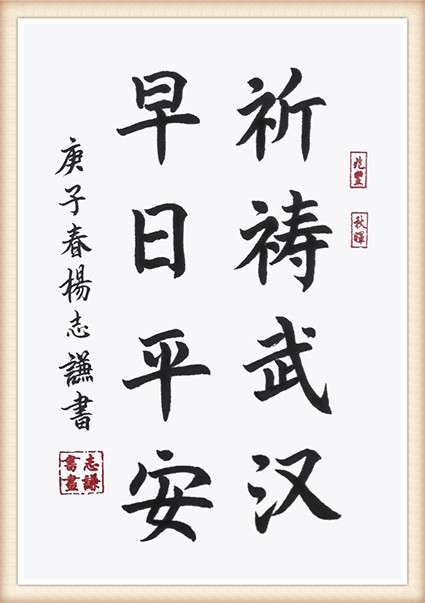 兆豐
秋暉
祈祷武汉
早日平安
庚子春楊志謙書
志謙
書畫